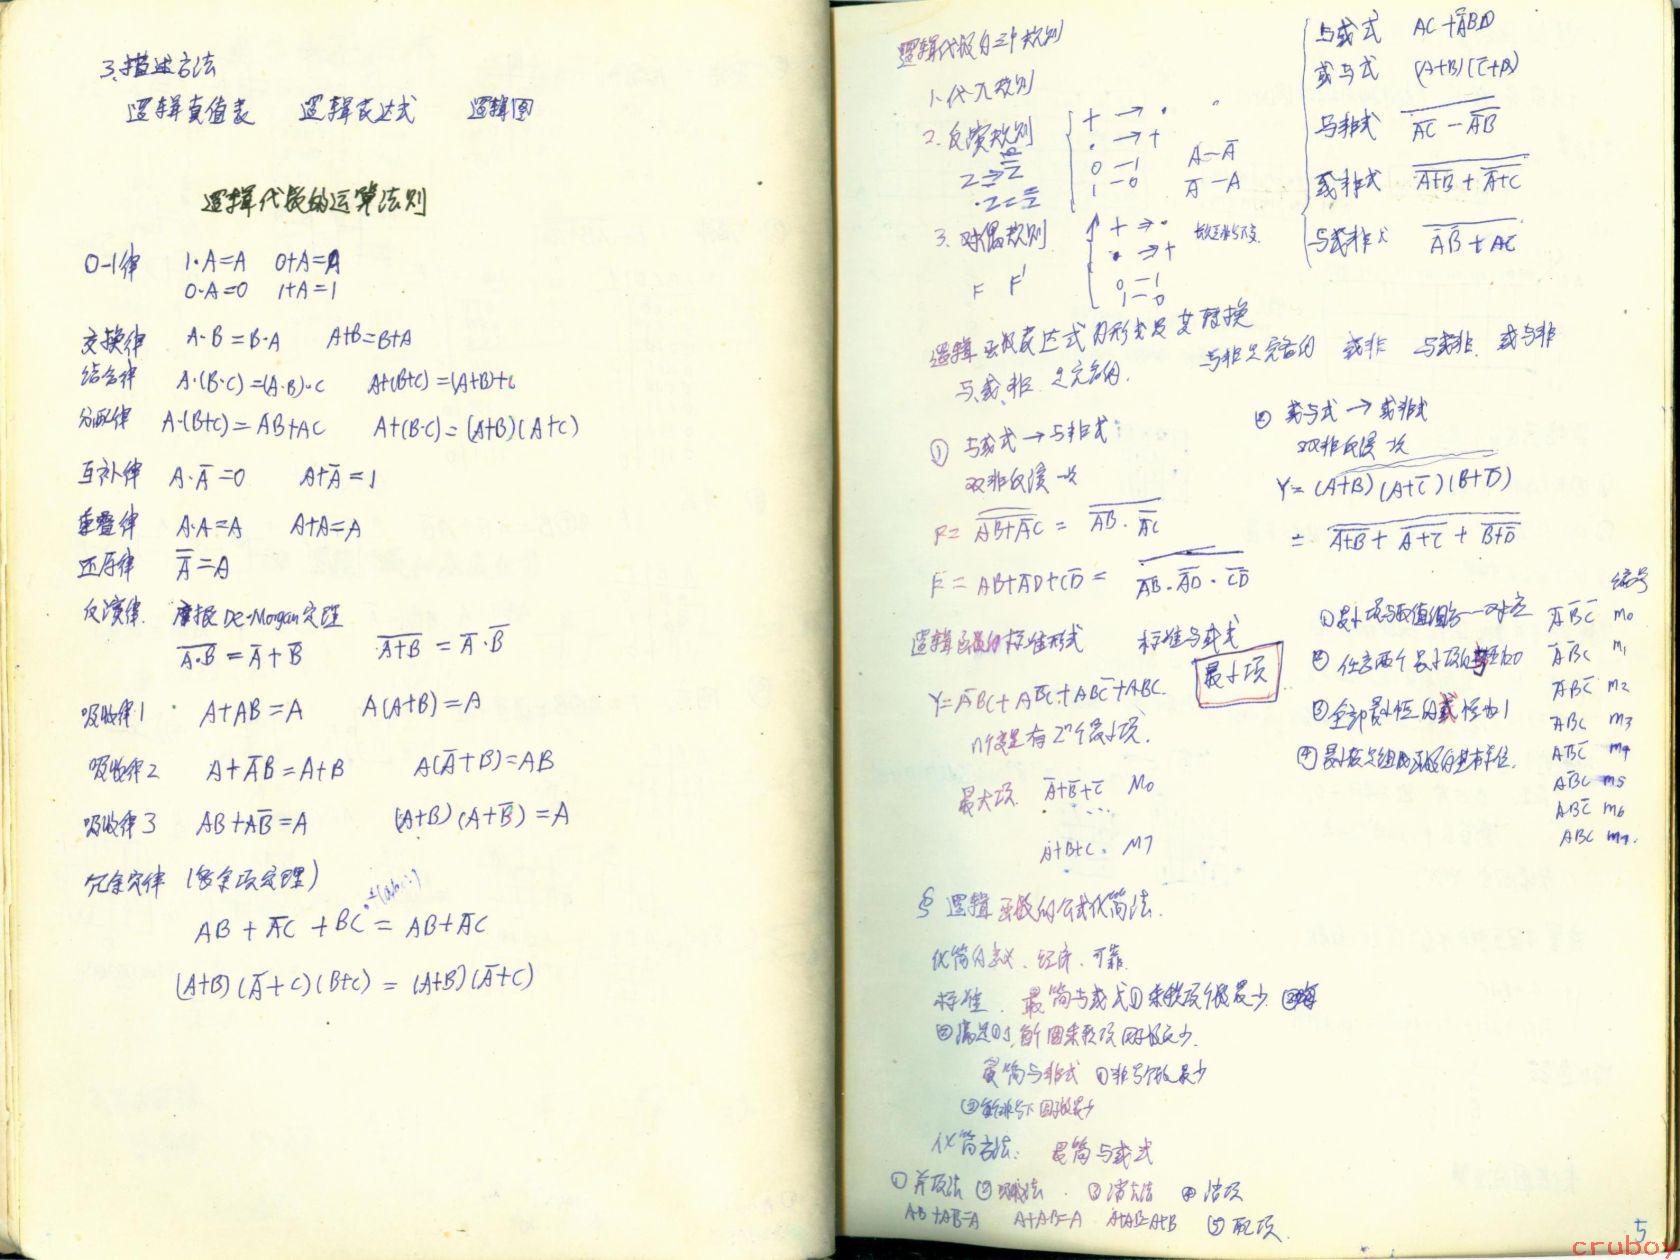 3.描述方法
逻辑真值表 逻辑表达式 逻辑图
逻辑代数的运算法则
0-1律 1·A=A 0+A=A
0·A=0 1+A=1
交换律 A·B=B·A A+B=B+A
结合律 A·(B·C)=(A·B)·C A+(B+C)=(A+B)+C
分配律 A·(B+C)=AB+AC A+(B·C)=(A+B)(A+C)
互补律 A·A̅=0 A+A̅=1
重叠律 A·A=A A+A=A
还原律 A̿=A
反演律. 摩根De-Morgan定理
\overline{A·B}=A̅+B̅ \overline{A+B}=A̅·B̅
吸收律1 A+AB=A A(A+B)=A
吸收律2 A+A̅B=A+B A(A̅+B)=AB
吸收律3 AB+AB̅=A (A+B)(A+B̅)=A
冗余定律 (多余项定理)
AB+A̅C+BC=AB+A̅C
(A+B)(A̅+C)(B+C)=(A+B)(A̅+C)
逻辑代数的三个规则
1.代入规则
2.反演规则
+→·
·→+
0—1 A—A̅
1—0 A̅—A
3.对偶规则
+→·
·→+
0—1
1—0
F F'
与或式 AC+A̅BD
或与式 (A+B)(C̅+D)
与非式
或非式
与或非式
逻辑函数表达式的形式及其转换
与、或、非 是完备的. 与非是完备的 或非 与或非. 或与非
① 与或式→与非式
双非反演一次
F= \overline{AB+A̅C} = \overline{AB}·\overline{A̅C}
F=AB+A̅D+CD̅=
② 或与式→或非式
双非反演一次
Y=(A+B)(A+C̅)(B+D̅)
= \overline{A+B}+\overline{A+C̅}+\overline{B+D̅}
逻辑函数的标准形式 标准与或式
最小项
Y=A̅BC+AB̅C+ABC̅+ABC.
n个变量有2ⁿ个最小项.
最大项. A̅+B̅+C̅ M0
...
A+B+C. M7
①最小项与取值组合一一对应
②任意两个最小项的与恒为0
③全部最小项的或恒为1
④最小项是组成函数的基本单位.
编号
A̅B̅C̅ m0
A̅B̅C m1
A̅BC̅ m2
A̅BC m3
AB̅C̅ m4
AB̅C m5
ABC̅ m6
ABC m7.
§ 逻辑函数的公式化简法.
化简的意义. 经济. 可靠.
标准. 最简与或式①乘积项个数最少.
②满足①时,每个乘积项因子最少.
最简与非式 ①非号个数最少
化简方法: 最简与或式
①并项法 ②吸收法. ③消去法 ④消项
AB+AB̅=A A+AB=A A+A̅B=A+B ⑤配项.
5
cruboy